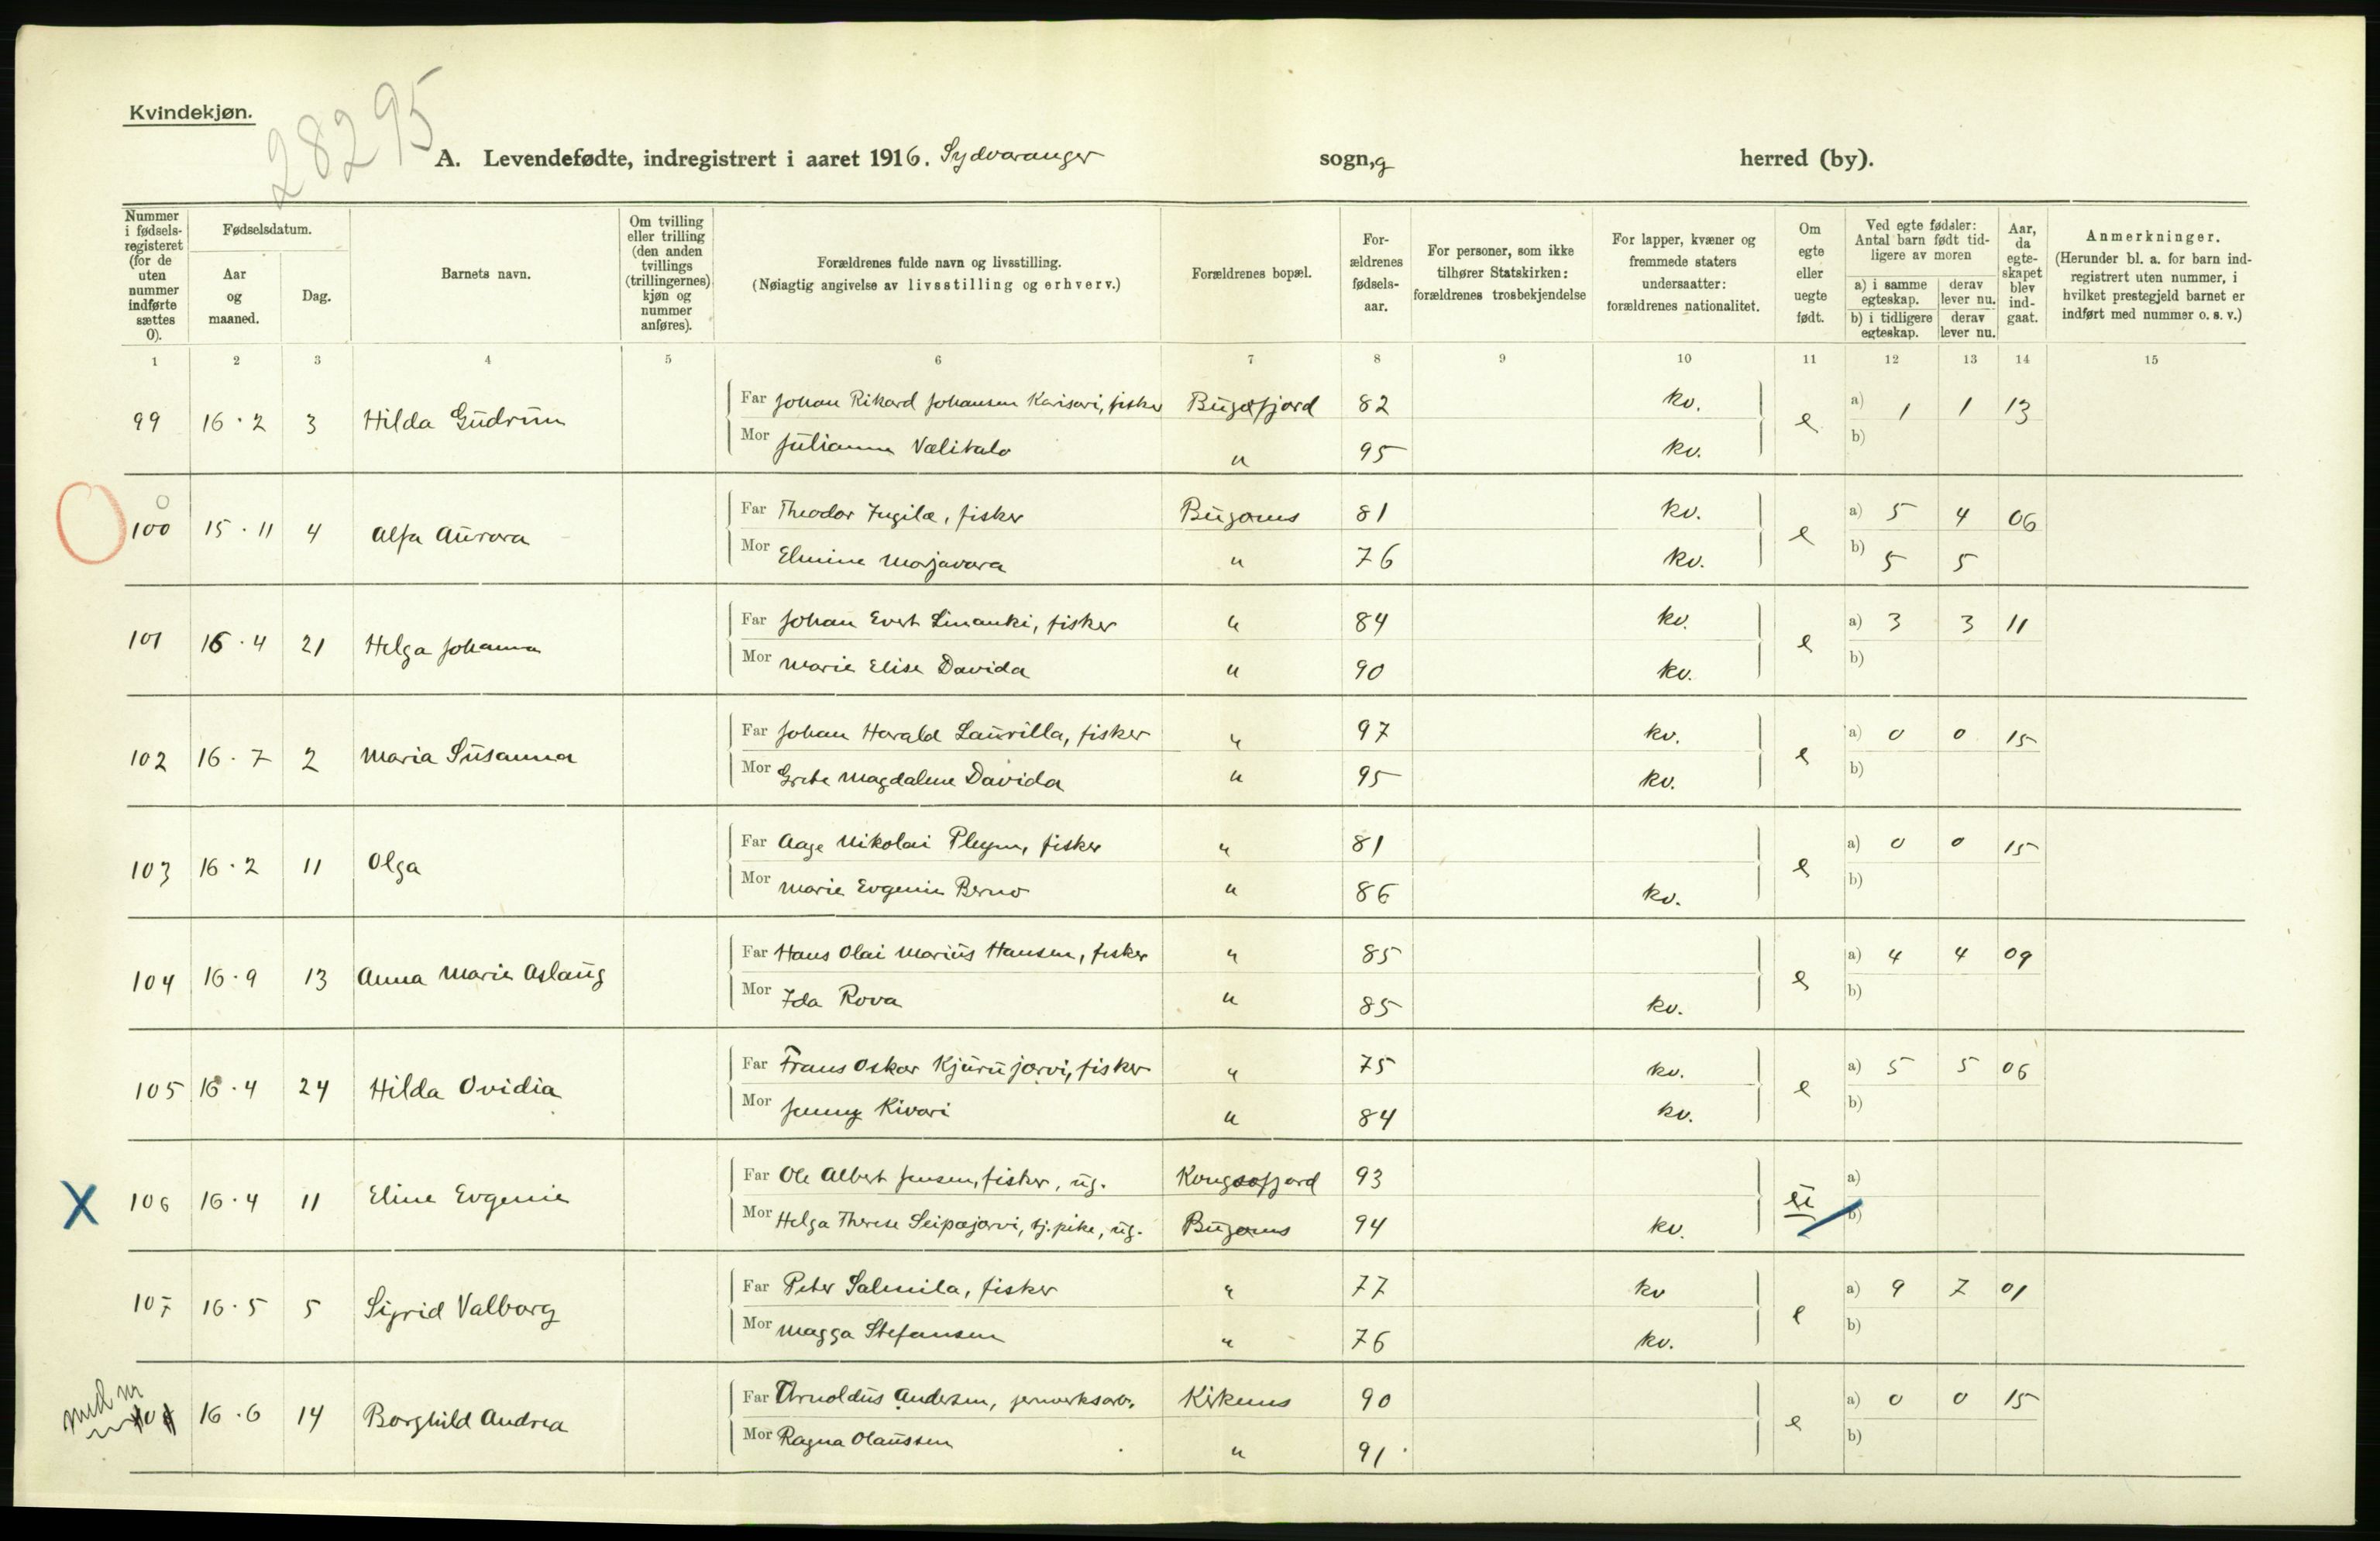 Kvindekjøn.
28295
A. Levendefødte, indregistrert i aaret 1916. Sydvaranger sogn, g herred (by).
Nummer i fødselsregisteret (for de uten nummer indførte sættes 0).
Fødselsdatum.
Aar og maaned.
Dag.
Barnets navn.
Om tvilling eller trilling (den anden tvillings (trillingernes) kjøn og nummer anføres).
Forældrenes fulde navn og livsstilling.
(Nøiagtig angivelse av livsstilling og erhverv.)
Forældrenes bopæl.
Forældrenes fødselsaar.
For personer, som ikke tilhører Statskirken: forældrenes trosbekjendelse
For lapper, kvæner og fremmede staters undersaatter: forældrenes nationalitet.
Om egte eller uegte født.
Ved egte fødsler: Antal barn født tidligere av moren
a) i samme egteskap. derav lever nu.
b) i tidligere egteskap. derav lever nu.
Aar, da egteskapet blev indgaat.
Anmerkninger.
(Herunder bl. a. for barn indregistrert uten nummer, i hvilket prestegjeld barnet er indført med nummer o. s. v.)
1 2 3 4 5 6 7 8 9 10 11 12 13 14 15
99 16·2 3 Hilda Gudrun Far Johan Rikard Johansen Karisari, fisker Bugøfjord 82 kv. e a) 1 1 13
Mor Julianne Vælitalo " 95 kv. b)
0
100 15·11 4 Alfa Aurora Far Theodor Jugila, fisker Bugønes 81 kv. e a) 5 4 06
Mor Elmine Marjavara " 76 kv. b) 5 5
101 16·4 21 Helga Johanna Far Johan Evert Linanki, fisker " 84 kv. e a) 3 3 11
Mor Marie Elise Davida " 90 kv. b)
102 16·7 2 Maria Susanna Far Johan Harald Laurilla, fisker " 97 kv. e a) 0 0 15
Mor Grete Magdalene Davida " 95 kv. b)
103 16·2 11 Olga Far Aage Nikolai Pleym, fisker " 81 e a) 0 0 15
Mor Marie Evgenie Berno " 86 kv. b)
104 16·9 13 Anna Marie Aslaug Far Hans Olai Marius Hansen, fisker " 85 e a) 4 4 09
Mor Ida Rova " 85 kv. b)
105 16·4 24 Hilda Ovidia Far Frans Oskar Kjurujarvi, fisker " 75 kv. e a) 5 5 06
Mor Jenny Kivari " 84 kv. b)
X 106 16·4 11 Eline Evgenie Far Ole Albert Jensen, fisker, ug. Kongsfjord 93 a)
Mor Helga Therese Seipajarvi, tj.pike, ug. Bugønes 94 kv. b)
107 16·5 5 Sigrid Valborg Far Peter Salmila, fisker " 77 kv e a) 9 7 01
Mor Magga Stefansen " 76 kv. b)
16·6 14 Borghild Andrea Far Arnoldus Andersen, jernverksarb. Kirkenes 90 e a) 0 0 15
Mor Ragna Olaussen " 91 b)